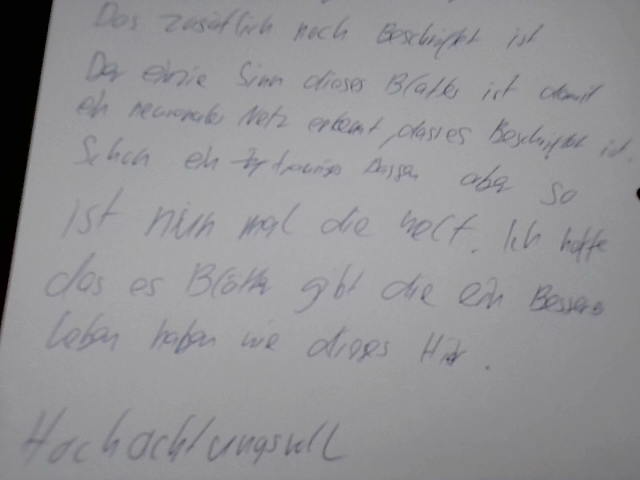 Das zusätlich noch Beschriftet ist
Der einzie Sinn dieses Blattes ist damit
ein neuronales Netz erkennt, dass es Beschriftet ist.
Schon ein trauriges Dassen aber so
ist nun mal die Welt. Ich hoffe
das es Blätter gibt die ein Besseres
Leben haben wie dieses Hier.
Hochachtungsvoll